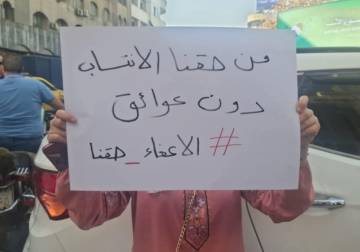 من حقنا الانتساب
دون عوائق
#الاعفاء_حقنا